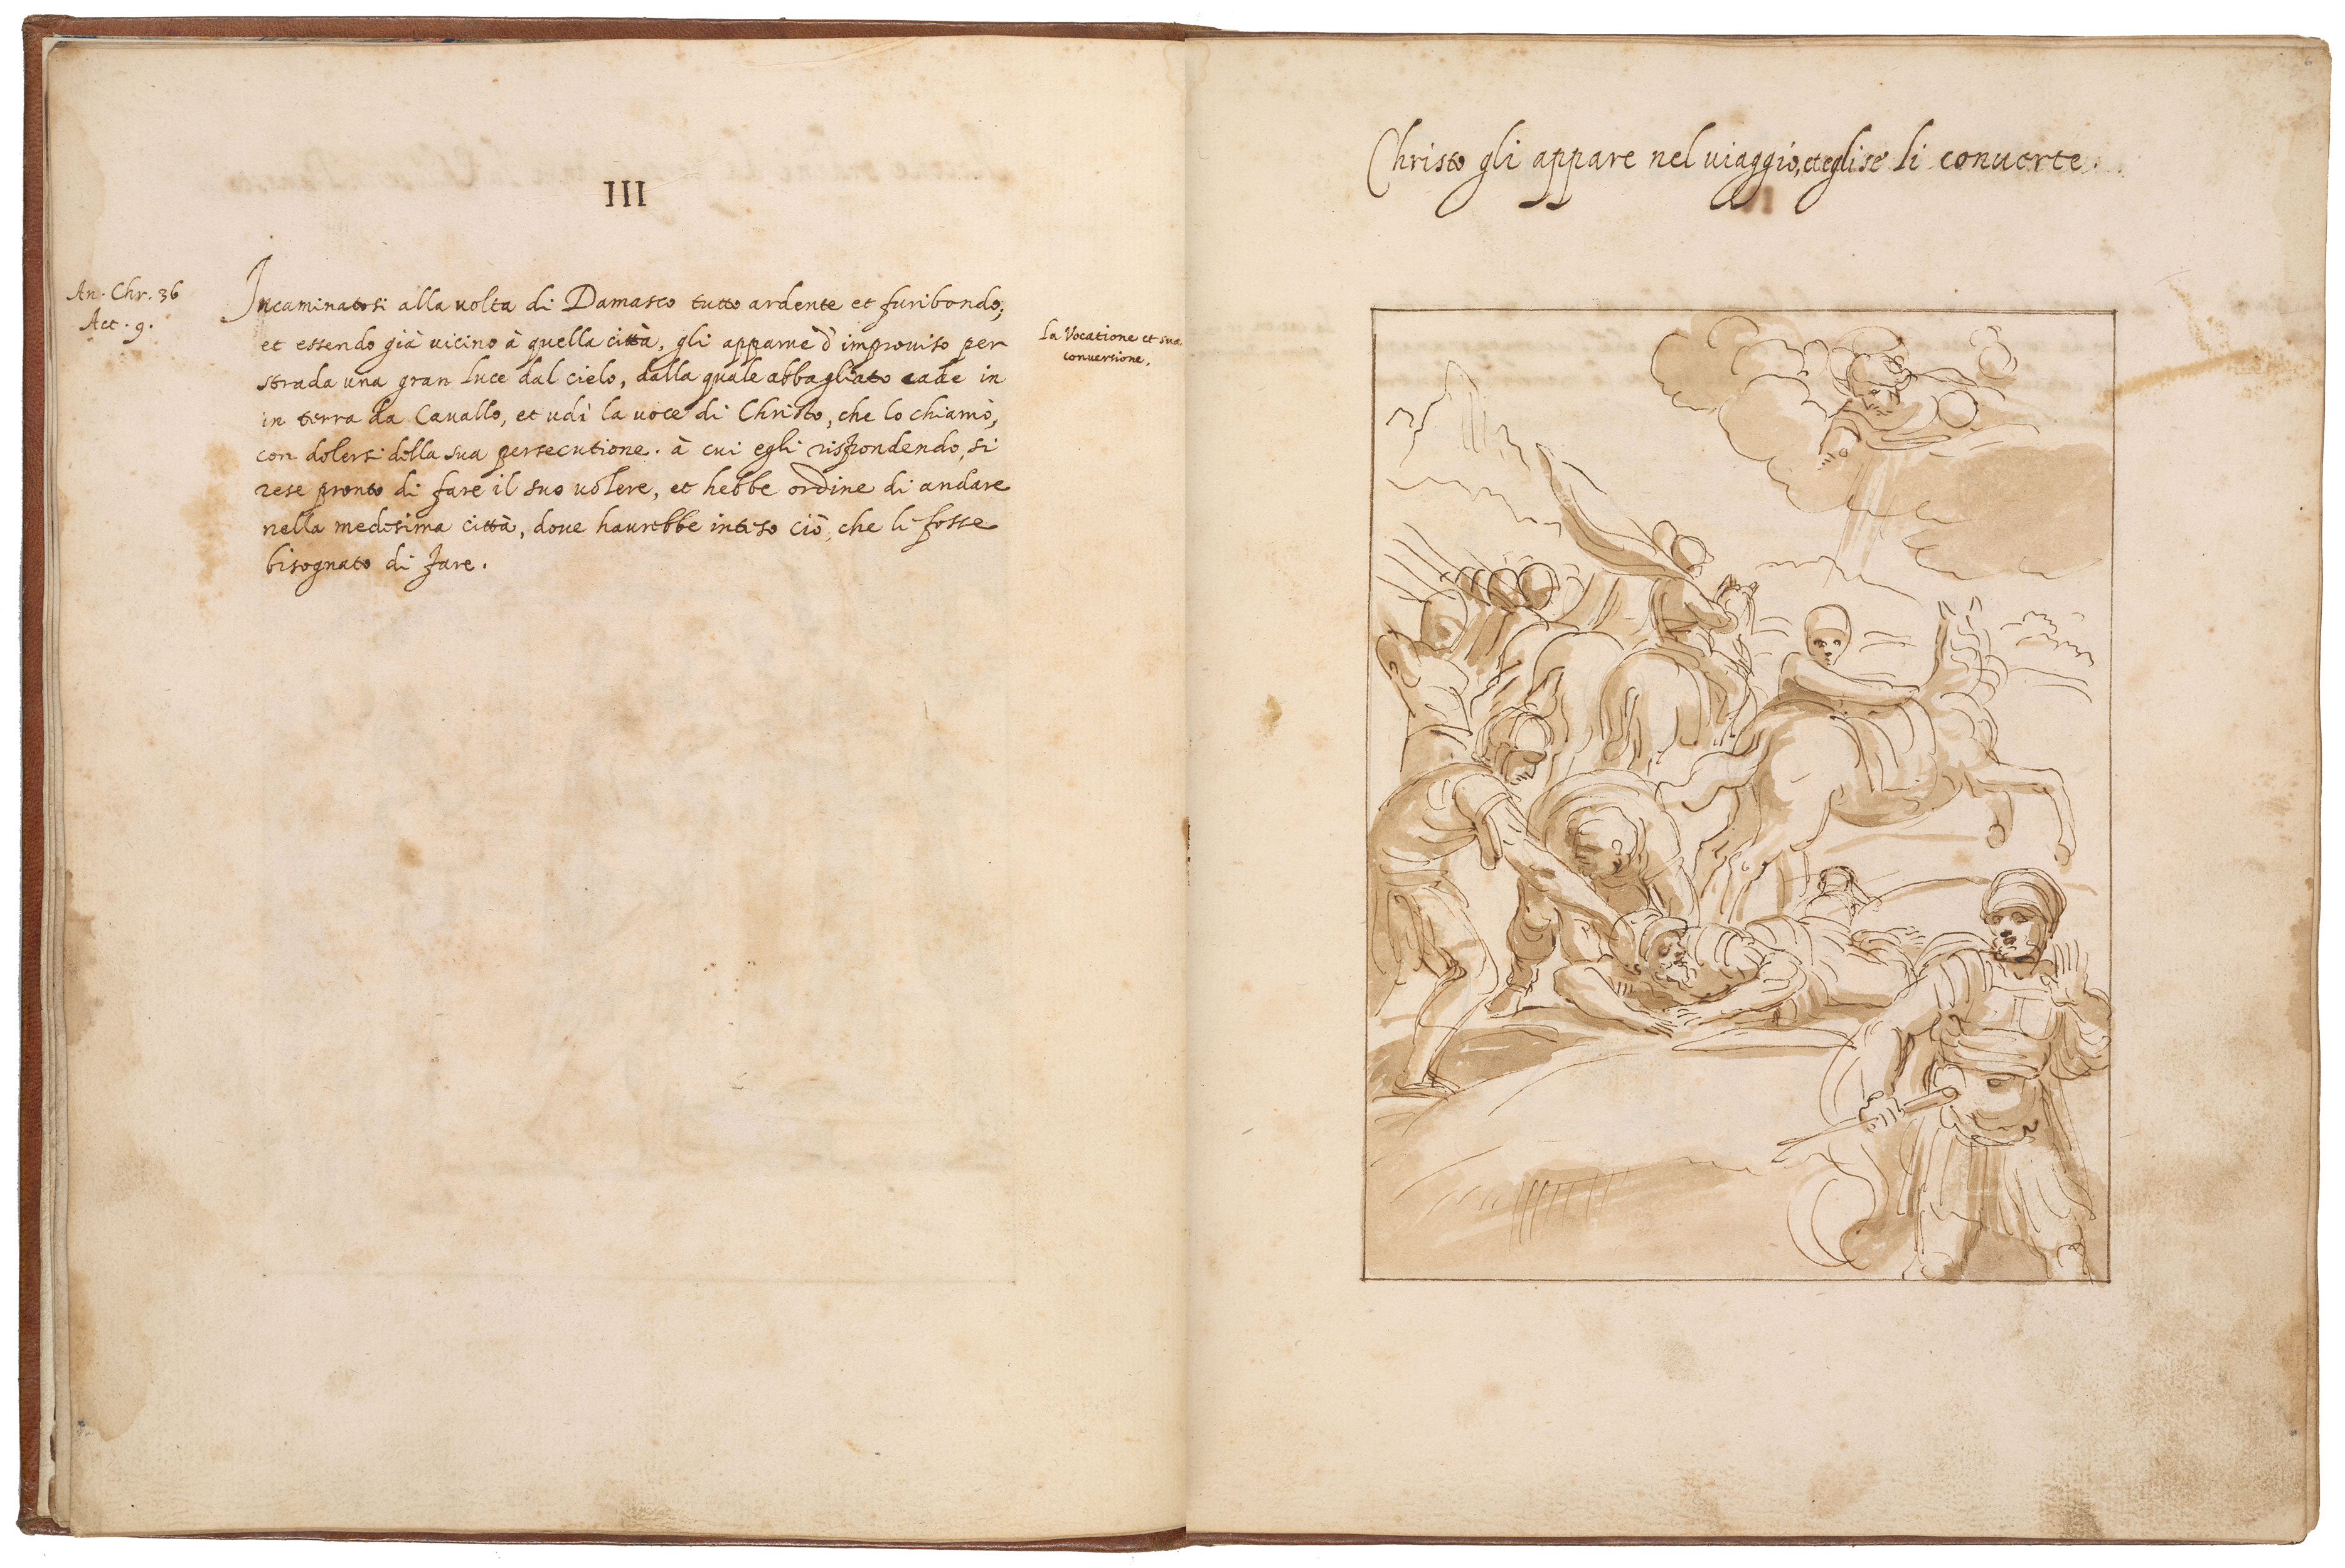 III
An. Chr. 36
Act. 9.
Incaminatosi alla uolta di Damasco tutto ardente et furibondo;
et essendo già uicino à quella città, gli apparue d'improuiso per
strada una gran luce dal cielo, dalla quale abbagliato cade in
in terra da Cauallo, et udì la uoce di Christo, che lo chiamò,
con dolersi della sua persecutione. à cui egli rispondendo, si
rese pronto di fare il suo uolere, et hebbe ordine di andare
nella medesima città, doue haurebbe inteso ciò, che li fosse
bisognato di fare.
la Vocatione et sua
conuersione.
Christo gli appare nel uiaggio, et egli se li conuerte.